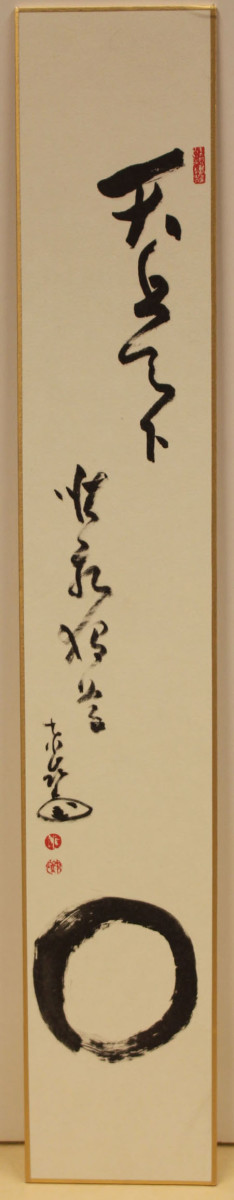 天上天下
惟我独尊